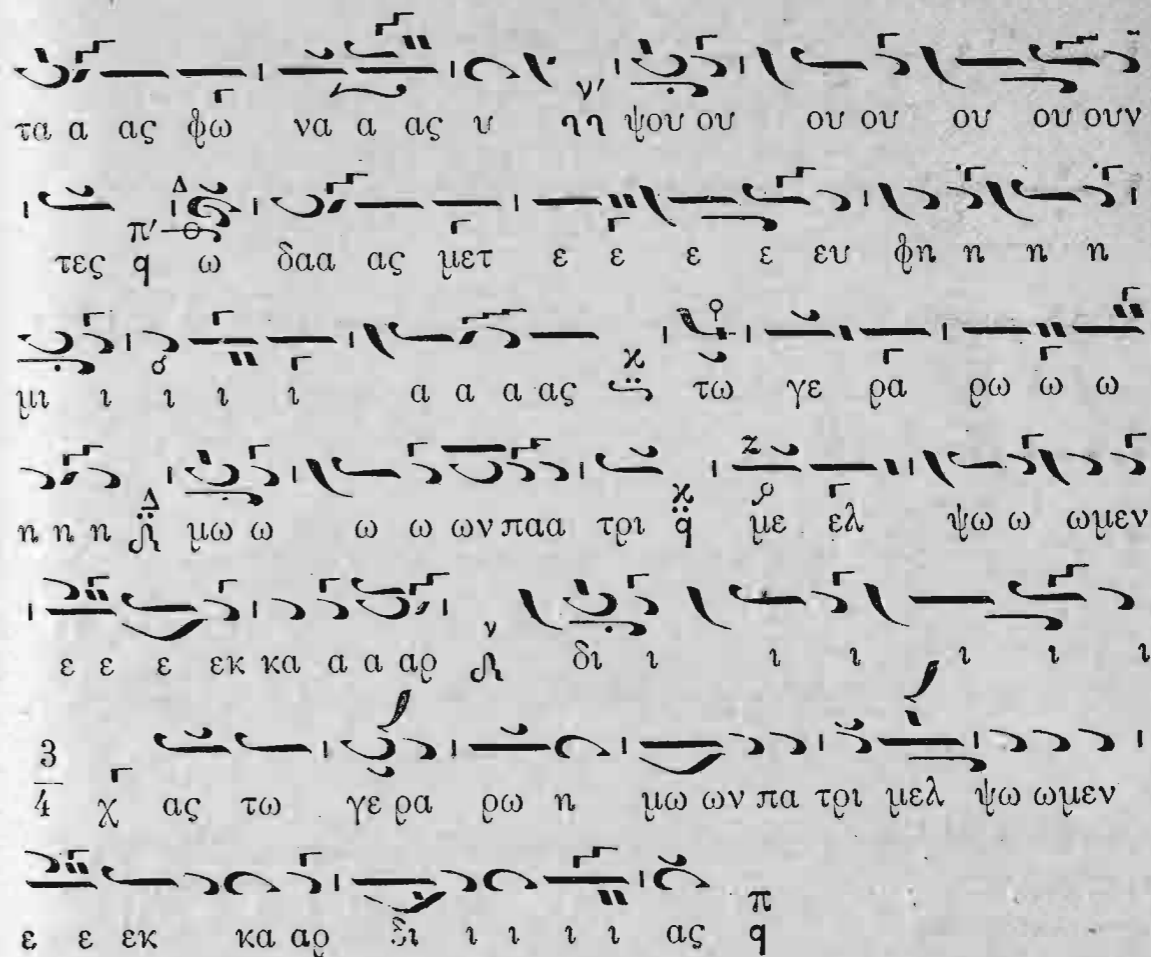 τα α ας φω να α ας υ ηη ψου ου ου ου ου ου ουν
τες ω δαα ας μετ ε ε ε ε ευ φη η η η η
μι ι ι ι ι α α α ας τω γε ρα ρω ω ω
η η η μω ω ω ω ων παα τρι με ελ ψω ω ωμεν
ε ε ε εκ κα α α αρ δι ι ι ι ι ι ι
3/4 χ ας τω γε ρα ρω η μω ων πα τρι μελ ψω ωμεν
ε ε εκ κα αρ δι ι ι ι ι ας